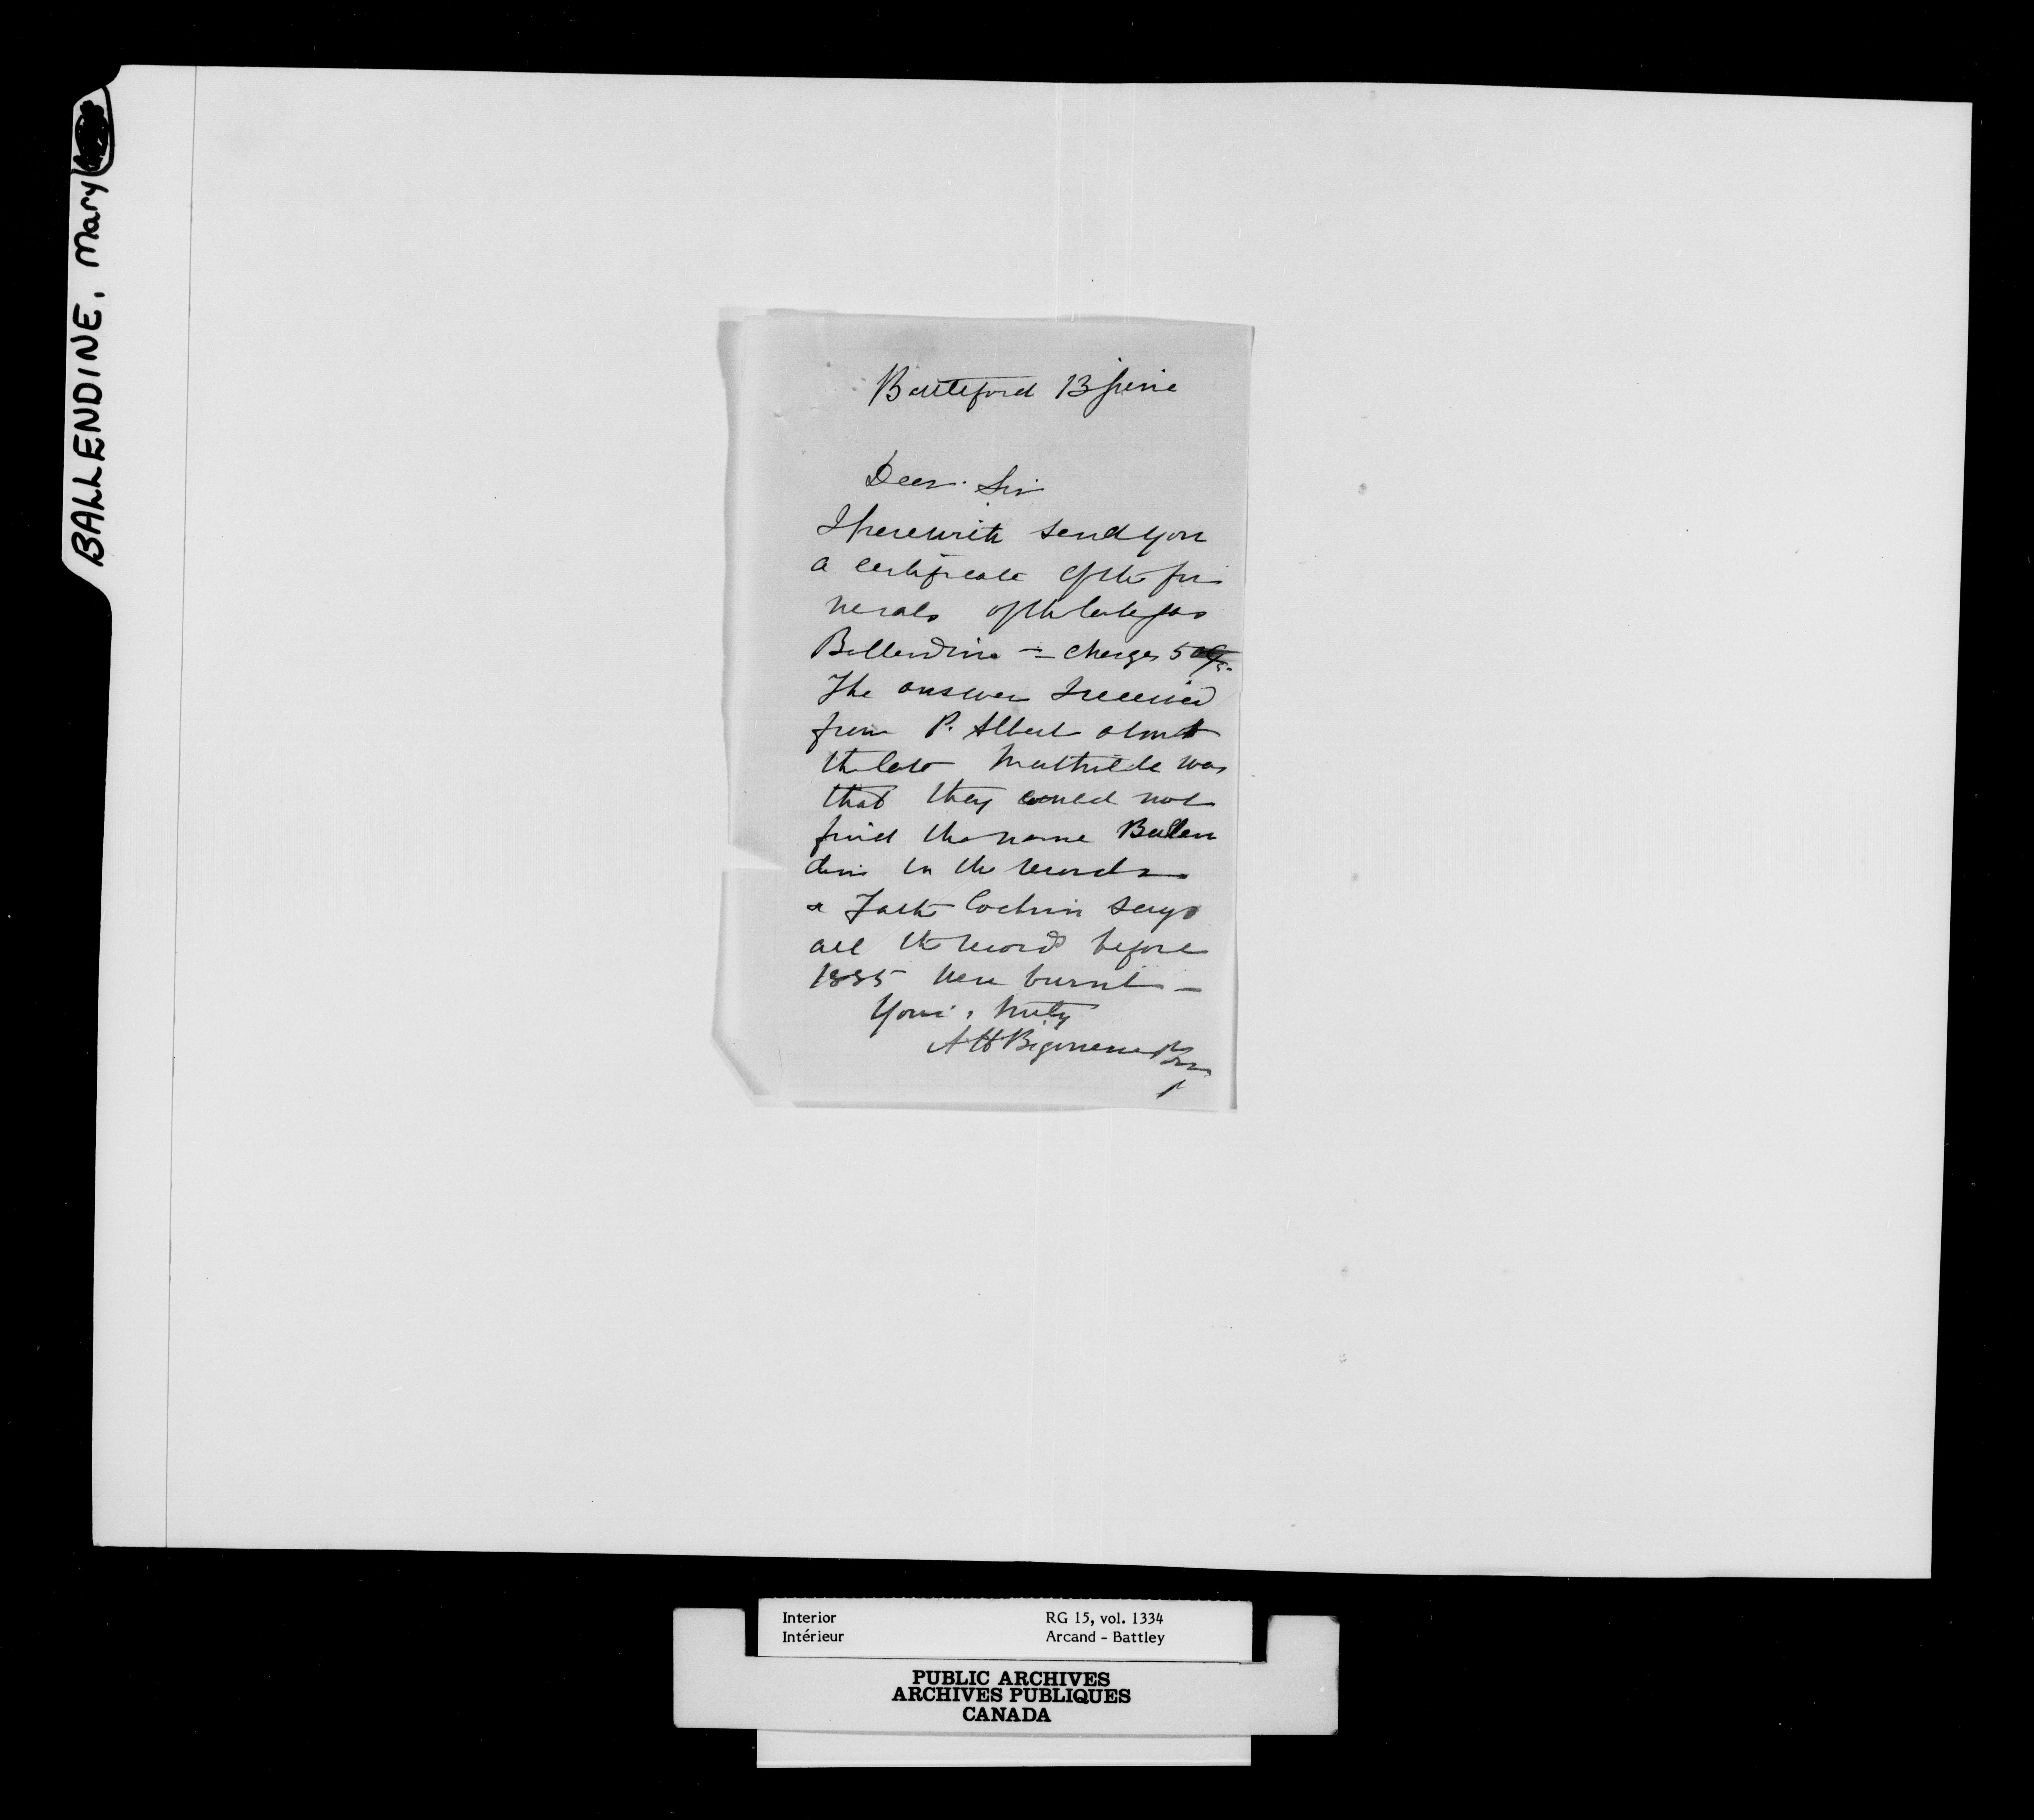 BALLENDINE, Mary
Battleford 13 June
Dear Sir
I herewith send you
a certificate of the fu
nerals of the late Jas
Ballendine — charges 50
The answer I received
from P. Albert about
the late Mathilde was
that they could not
find the name Ballen
dine in the records
& Jack Cochrin says
all the records before
1885 were burnt —
Yours truly
A H Bigonesse
Interior RG 15, vol. 1334
Intérieur Arcand - Battley
PUBLIC ARCHIVES
ARCHIVES PUBLIQUES
CANADA